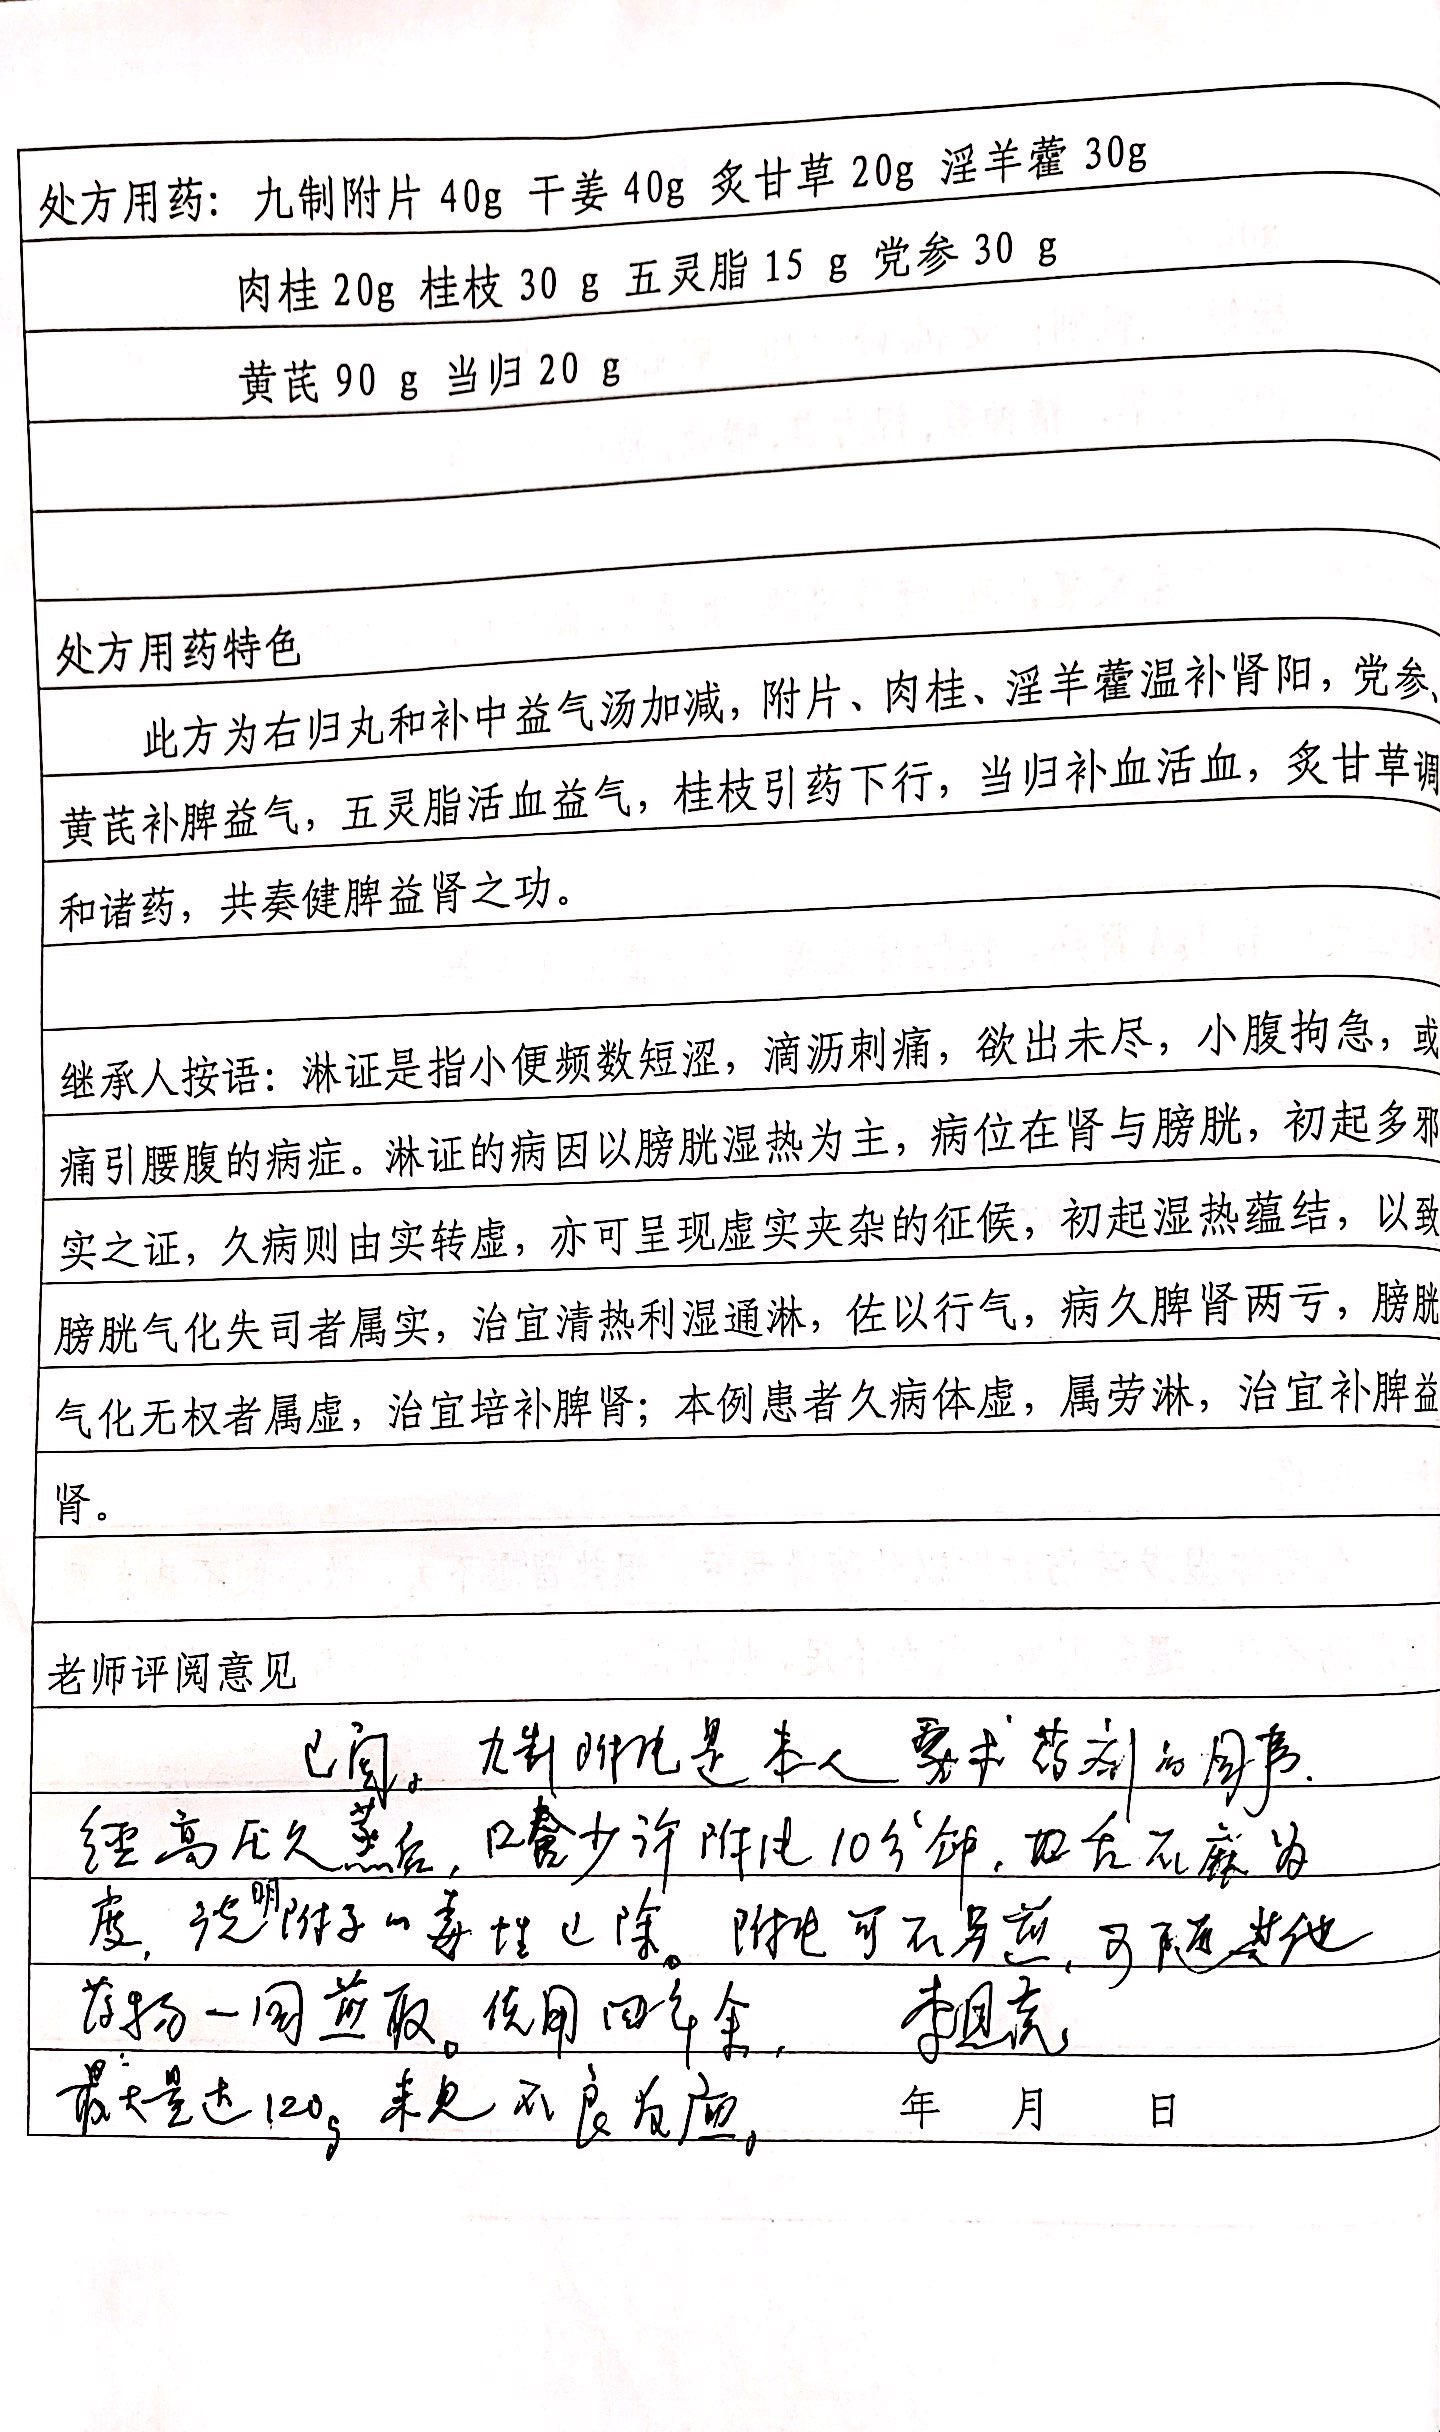 处方用药： 九制附片 40g 干姜 40g 炙甘草 20g 淫羊藿 30g
肉桂 20g 桂枝 30 g 五灵脂 15 g 党参 30 g
黄芪 90 g 当归 20 g
处方用药特色
此方为右归丸和补中益气汤加减，附片、肉桂、淫羊藿温补肾阳，党参、
黄芪补脾益气，五灵脂活血益气，桂枝引药下行，当归补血活血，炙甘草调
和诸药，共奏健脾益肾之功。
继承人按语：淋证是指小便频数短涩，滴沥刺痛，欲出未尽，小腹拘急，或
痛引腰腹的病症。淋证的病因以膀胱湿热为主，病位在肾与膀胱，初起多邪
实之证，久病则由实转虚，亦可呈现虚实夹杂的征候，初起湿热蕴结，以致
膀胱气化失司者属实，治宜清热利湿通淋，佐以行气，病久脾肾两亏，膀胱
气化无权者属虚，治宜培补脾肾；本例患者久病体虚，属劳淋，治宜补脾益
肾。
老师评阅意见
已阅。九制附片是本人要求药剂的同事.
经高压久蒸后，口含少许附片10分钟，口舌不麻为
度，说明附子的毒性已除。附片可不另煎，可随其他
药物一同煎取。使用四年余，
最大量达120g 未见不良反应。
年 月 日